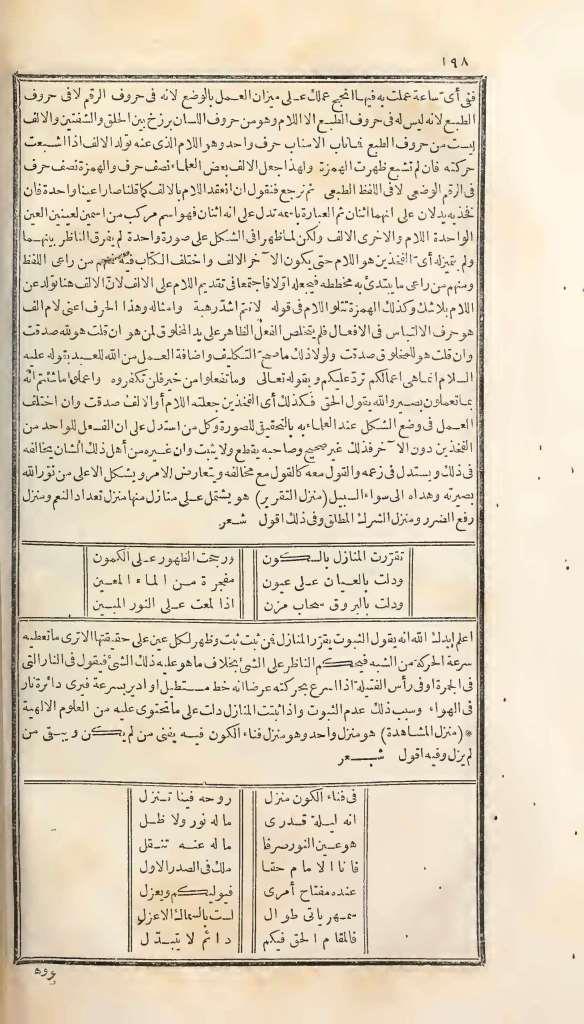 ١٩٨
ففي أي ساعة عملت به فيها أنجح عملك على ميزان العمل بالوضع لانه فى حروف الرقم لا فى حروف
الطبع لانه ليس له فى حروف الطبع الا اللام وهو من حروف اللسان برزخ بين الحلق والشفتين والالف
ليست من حروف الطبع فماناب الامناب حرف واحد وهو اللام الذى عنه تولد الالف اذا أشبعت
حركته فان لم تشبع ظهرت الهمزة ولهذا جعل الالف بعض العلماء نصف حرف والهمزة نصف حرف
فى الرقم الوضعى لا فى اللفظ الطبعى ثم نرجع فنقول ان انعقد اللام بالالف كما قلنا صارا عينا واحدة فان
فخذيه يدلان على انهما اثنان ثم العبارة باسمه تدل على انه اثنان فهو اسم مركب من اسمين لعينين العين
الواحدة اللام والاخرى الالف ولكن لما ظهرا فى الشكل على صورة واحدة لم يفرق الناظر بينهما
ولم يتميزله أى الفخذين هو اللام حتى يكون الآخر الالف واختلف الكتاب فيه فمنهم من راعى اللفظ
ومنهم من راعى ما يبتدئ به مخططه فيجعله أولا فاجتمعا فى تقديم اللام على الالف لان الالف هنا تولد عن
اللام بلاشك وكذلك الهمزة تتلو اللام فى قوله لانتم أشد رهبة وامثاله وهذا الحرف اعنى لام الف
هو حرف الالتباس فى الافعال فلم يتخلص الفعل الظاهر على يد المخلوق لمن هو ان قلت هو لله صدقت
وان قلت هو للمخلوق صدقت ولولا ذلك ما صح التكليف واضافة العمل من الله للعبد بقوله عليه
السلام انما هى اعمالكم ترد عليكم وبقوله تعالى وما تفعلوا من خير فلن تكفروه واعملوا ما شئتم انه
بما تعملون بصير والله يقول الحق فكذلك أى الفخذين جعلته اللام أو الالف صدقت وان اختلف
العمل فى وضع الشكل عند العلماء به بالتحقيق للصورة وكل من استدل على ان الفعل للواحد من
الفخذين دون الآخر فذلك غير صحيح وصاحبه يقطع ولا يثبت وان غيره من أهل ذلك الشان يخالفه
فى ذلك ويستدل فى زعمه والقول معه كالقول مع مخالفه ويتعارض الامر ويشكل الا على من نور الله
بصيرته وهداه الى سواء السبيل (منزل التقرير) هو يشتمل على منازل منها منزل تعداد النعم ومنزل
رفع الضرر ومنزل الشرك المطلق وفى ذلك أقول شعر
تقررت المنازل بالسكون ورجحت الظهور على الكمون
ودلت بالعيان على عيون مفجرة من الماء المعين
ودلت بالبروق سحاب مزن اذا لمعت على النور المبين
اعلم ايدك الله انه يقول الثبوت يقرر المنازل فمن ثبت ثبت وظهر لكل عين على حقيقتها الا ترى ما تعطيه
سرعة الحركة من الشبه فيحكم الناظر على الشئ بخلاف ما هو عليه ذلك الشئ فيقول فى النار التى
فى الجمرة أو فى رأس الفتيلة اذا أسرع بحركته عرضا انه خط مستطيل أو ادير بسرعة فيرى دائرة نار
فى الهواء وسبب ذلك عدم الثبوت واذا ثبتت المنازل دلت على ما تحتوى عليه من العلوم الالهية
* (منزل المشاهدة) هو منزل واحد وهو منزل فناء الكون فيه يفنى من لم يكن ويبقى من
لم يزل وفيه أقول شعر
فى فناء الكون منزل روحه فينا تنزل
انه ليلة قدرى ماله نور ولا ظل
هو عين النور صرفا ماله عنه تنقل
فانا الامام حقا ملك فى الصدر الاول
عنده مفتاح أمرى فيوليكم ويعزل
سمهرياتى طوال لست بالسماك الاعزل
فالمقام الحق فيكم دائم لا يتبدل